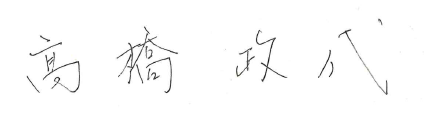 高橋 政代